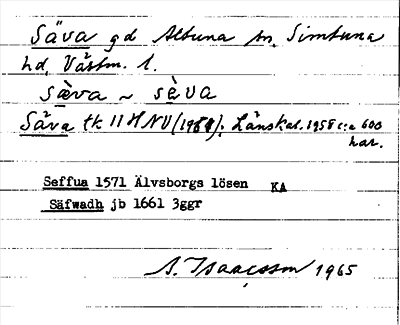 Säva gd Altuna sn, Simtuna
hd, Västm. l.
sæ̀va ~ sèva
Säva tk 11 H NV (1961); Länskal. 1958 c:a 600
har.
Seffua 1571 Älvsborgs lösen KA
Säfwadh jb 1661 3ggr
S. Isaacsson 1965